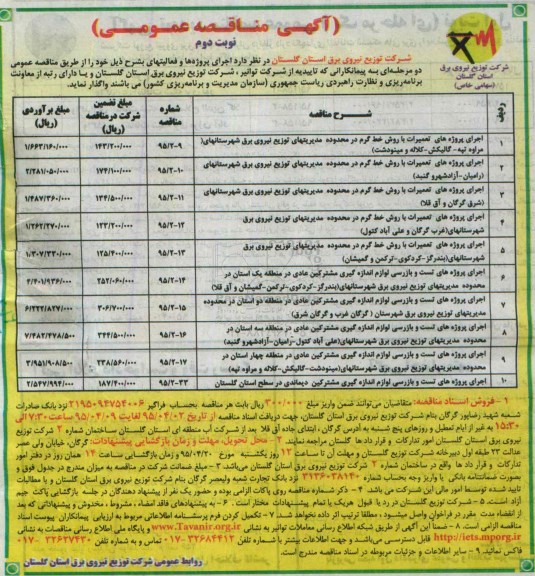 (آگهی مناقصه عمومی)
نوبت دوم
شرکت توزیع نیروی برق
استان گلستان
(سهامی خاص)
شرکت توزیع نیروی برق استان گلستان در نظر دارد اجرای پروژه‌ها و فعالیتهای بشرح ذیل خود را از طریق مناقصه عمومی
دو مرحله‌ای به پیمانکارانی که تاییدیه از شرکت توانیر ، شرکت توزیع نیروی برق استان گلستان و یا دارای رتبه از معاونت
برنامه‌ریزی و نظارت راهبردی ریاست جمهوری (سازمان مدیریت و برنامه‌ریزی کشور) می باشند واگذار نماید.
ردیف شرح مناقصه شماره مناقصه مبلغ تضمین شرکت درمناقصه (ریال) مبلغ برآوردی (ریال)
۱ اجرای پروژه های تعمیرات با روش خط گرم در محدوده مدیریتهای توزیع نیروی برق شهرستانهای( مراوه تپه- گالیکش-کلاله و مینودشت) ۹۵/۲-۹ ۱۴۳/۲۰۰/۰۰۰ ۱/۶۶۳/۱۶۰/۰۰۰
۲ اجرای پروژه های تعمیرات با روش خط گرم در محدوده مدیریتهای توزیع نیروی برق شهرستانهای (رامیان-آزادشهرو گنبد) ۹۵/۲-۱۰ ۱۷۴/۱۰۰/۰۰۰ ۲/۲۸۱/۰۵۰/۰۰۰
۳ اجرای پروژه های تعمیرات با روش خط گرم در محدوده مدیریتهای توزیع نیروی برق شهرستانهای (شرق گرگان و آق قلا) ۹۵/۲-۱۱ ۱۳۴/۵۰۰/۰۰۰ ۱/۴۸۷/۳۶۰/۰۰۰
۴ اجرای پروژه های تعمیرات با روش خط گرم در محدوده مدیریتهای توزیع نیروی برق شهرستانهای(غرب گرگان و علی آباد کتول) ۹۵/۲-۱۲ ۱۲۳/۲۰۰/۰۰۰ ۱/۲۶۲/۲۷۰/۰۰۰
۵ اجرای پروژه های تعمیرات با روش خط گرم در محدوده مدیریتهای توزیع نیروی برق شهرستانهای(بندرگز-کردکوی-ترکمن و گمیشان) ۹۵/۲-۱۳ ۱۲۵/۴۰۰/۰۰۰ ۱/۳۰۷/۳۳۰/۰۰۰
۶ اجرای پروژه های تست و بازرسی لوازم اندازه گیری مشترکین عادی در منطقه یک استان در محدوده مدیریتهای توزیع نیروی برق شهرستانهای(بندرگز-کردکوی-ترکمن-گمیشان و آق قلا) ۹۵/۲-۱۴ ۲۵۲/۰۶۰/۰۰۰ ۴/۴۰۱/۹۳۶/۰۰۰
۷ اجرای پروژه های تست و بازرسی لوازم اندازه گیری مشترکین عادی در منطقه دو استان در محدوده مدیریتهای توزیع نیروی برق شهرستان ( گرگان غرب و گرگان شرق) ۹۵/۲-۱۵ ۳۰۶/۷۰۰/۰۰۰ ۶/۲۲۲/۸۲۷/۰۰۰
۸ اجرای پروژه های تست و بازرسی لوازم اندازه گیری مشترکین عادی در منطقه سه استان در محدوده مدیریتهای توزیع نیروی برق شهرستانهای(علی آباد کتول-رامیان-آزادشهرو گنبد) ۹۵/۲-۱۶ ۳۴۴/۵۰۰/۰۰۰ ۷/۴۸۲/۴۷۸/۵۰۰
۹ اجرای پروژه های تست و بازرسی لوازم اندازه گیری مشترکین عادی در منطقه چهار استان در محدوده مدیریتهای توزیع نیروی برق شهرستانهای(مینودشت-گالیکش-کلاله و مراوه تپه) ۹۵/۲-۱۷ ۲۳۸/۵۶۰/۰۰۰ ۳/۹۵۱/۹۰۸/۵۰۰
۱۰ اجرای پروژه های تست و بازرسی لوازم اندازه گیری مشترکین دیماندی در سطح استان گلستان ۹۵/۲-۳۳ ۱۸۷/۴۰۰/۰۰۰ ۲/۵۴۷/۹۹۴/۰۰۰
۱ - فروش اسناد مناقصه: متقاضیان می‌توانند ضمن واریز مبلغ ۳۰۰/۰۰۰ ریال بابت هر مناقصه بحساب فراگیر ۲۱۹۵۰۹۴۷۵۴۰۰۶ نزد بانک صادرات
شعبه شهید رضاپور گرگان بنام شرکت توزیع نیروی برق استان گلستان، جهت دریافت اسناد مناقصه از تاریخ ۹۵/۰۴/۰۲ لغایت ۹۵/۰۴/۰۹ ساعت ۷:۳۰ الی
۱۵:۳۰ به غیر از ایام تعطیل و روزهای پنج شنبه به آدرس گرگان ، ابتدای جاده آق قلا بعد از شرکت آب منطقه ای استان گلستان ساختمان شماره ۲ شرکت توزیع
نیروی برق استان گلستان امور تدارکات و قرار داد ها گلستان مراجعه نمایند. ۲ - محل تحویل، مهلت و زمان بازگشایی پیشنهادات: گرگان، خیابان ولی عصر
عدالت ۲۳ طبقه اول دبیرخانه شرکت توزیع گلستان و مهلت آن تا ساعت ۱۲ روز یکشنبه مورخ ۹۵/۰۴/۲۰ و زمان بازگشایی ساعت ۱۴ همان روز در دفتر امور
تدارکات و قرار داد ها واقع در ساختمان شماره ۲ شرکت توزیع نیروی برق استان گلستان می‌باشد. ۳ - مبلغ ضمانت شرکت در مناقصه به میزان مندرج در جدول فوق و
بصورت ضمانتنامه بانکی یا واریز وجه بحساب شماره ۳۱۳۶۰۳۸۱۴۰ نزد بانک تجارت شعبه ولیعصر گرگان بنام شرکت توزیع نیروی برق استان گلستان و یا مطالبات
تایید شده توسط امور مالی این شرکت می باشد. ۴ - ذکر شماره مناقصه روی پاکات الزامی بوده و حضور یک نفر از پیشنهاد دهندگان در جلسه بازگشایی پاکت جیم
آزاد است. ۵ - شرکت توزیع گلستان در رد یا قبول هریک یا تمام پیشنهادات مختار است. ۶ - به پیشنهادهای فاقد امضاء ، مشروط ، مخدوش و پیشنهاداتی که بعد
از انقضاء مدت مقرر در فراخوان واصل میشود ، مطلقا ترتیب اثر داده نخواهد شد. ۷ - تکمیل کردن فرم پرسشنامه اطلاعاتی مربوط به ارزیابی پیمانکاران پیوست اسناد
مناقصه الزامی است. ۸ - ضمنا این آگهی از طریق شبکه اطلاع رسانی معاملات توانیر به نشانی www.Tavanir.org.ir و پایگاه ملی اطلاع رسانی مناقصات به نشانی
http://iets.mporg.ir قابل دسترسی می‌باشد و جهت اطلاعات بیشتر با شماره تلفن ۳۲۶۸۴۴۱۲-۰۱۷ تماس و به شماره تلفن ۳۲۶۲۷۴۳۰-۰۱۷
فاکس نمائید. ۹ - سایر اطلاعات و جزئیات مربوطه در اسناد مناقصه مندرج است.
روابط عمومی شرکت توزیع نیروی برق استان گلستان